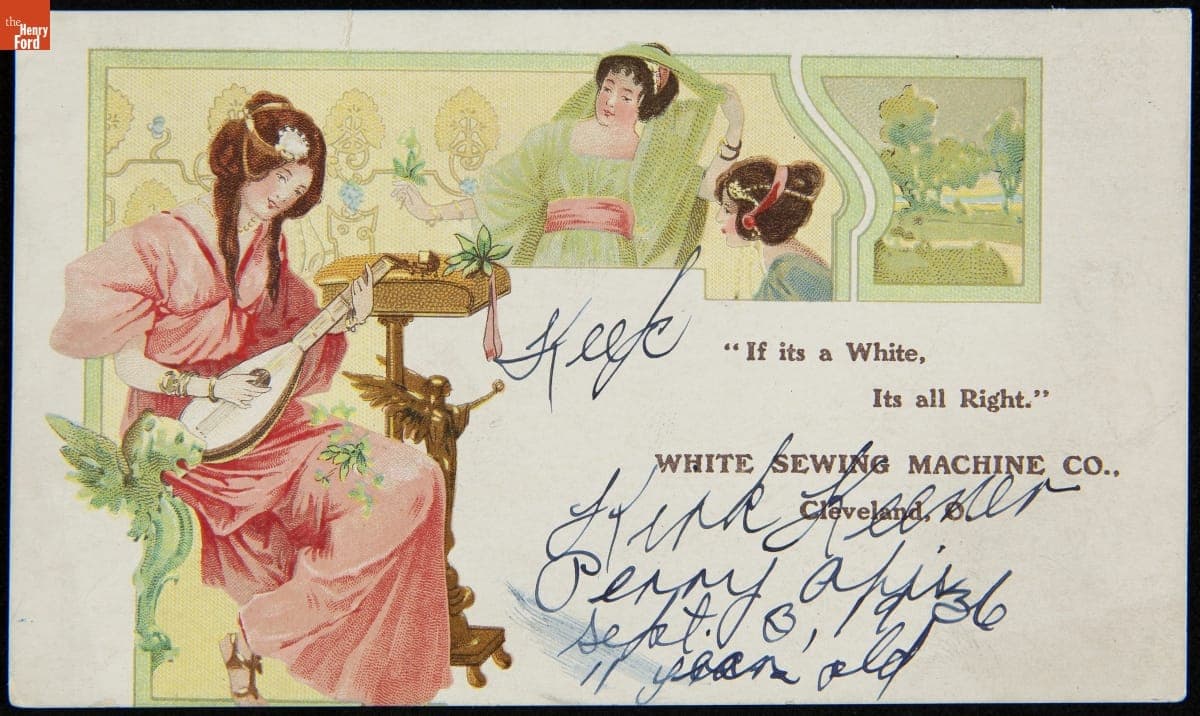 the
Henry
Ford
"If its a White,
Its all Right."
WHITE SEWING MACHINE CO.,
Cleveland, O.
Kirk
Perry Ohio
Sept. 3, 1936
11 years old